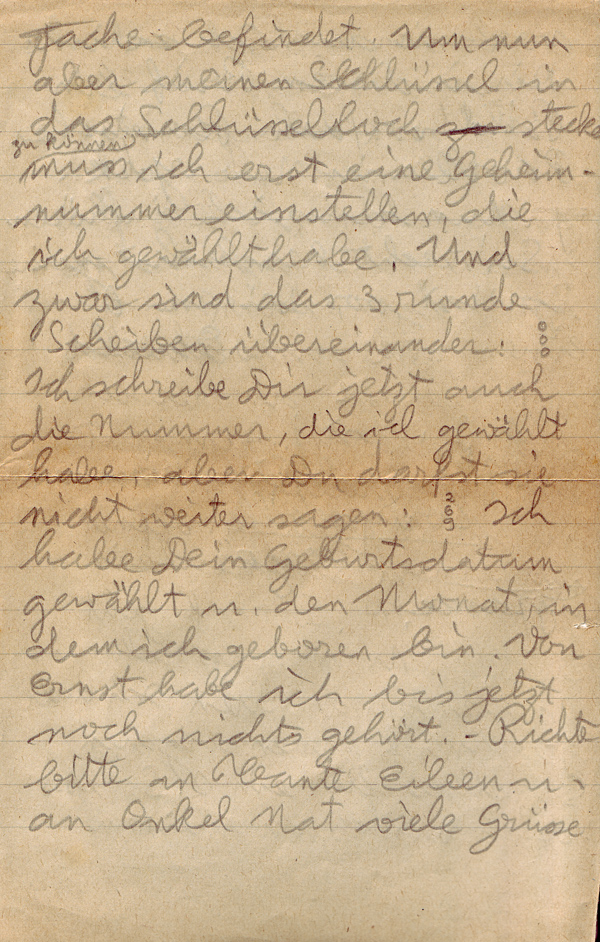 Fache befindet. Um nun
aber meinen Schlüssel in
das Schlüsselloch zu stecken
zu können
muss ich erst eine Geheim-
nummer einstellen, die
ich gewählt habe. Und
zwar sind das 3 runde
Scheiben übereinander: 000
Ich schreibe Dir jetzt auch
die Nummer, die ich gewählt
habe, aber Du darfst sie
nicht weiter sagen: 269 Ich
habe Dein Geburtsdatum
gewählt u. den Monat, in
dem ich geboren bin. Von
Ernst habe ich bis jetzt
noch nichts gehört. - Richte
bitte an Tante Eileen u.
an Onkel Nat viele Grüsse